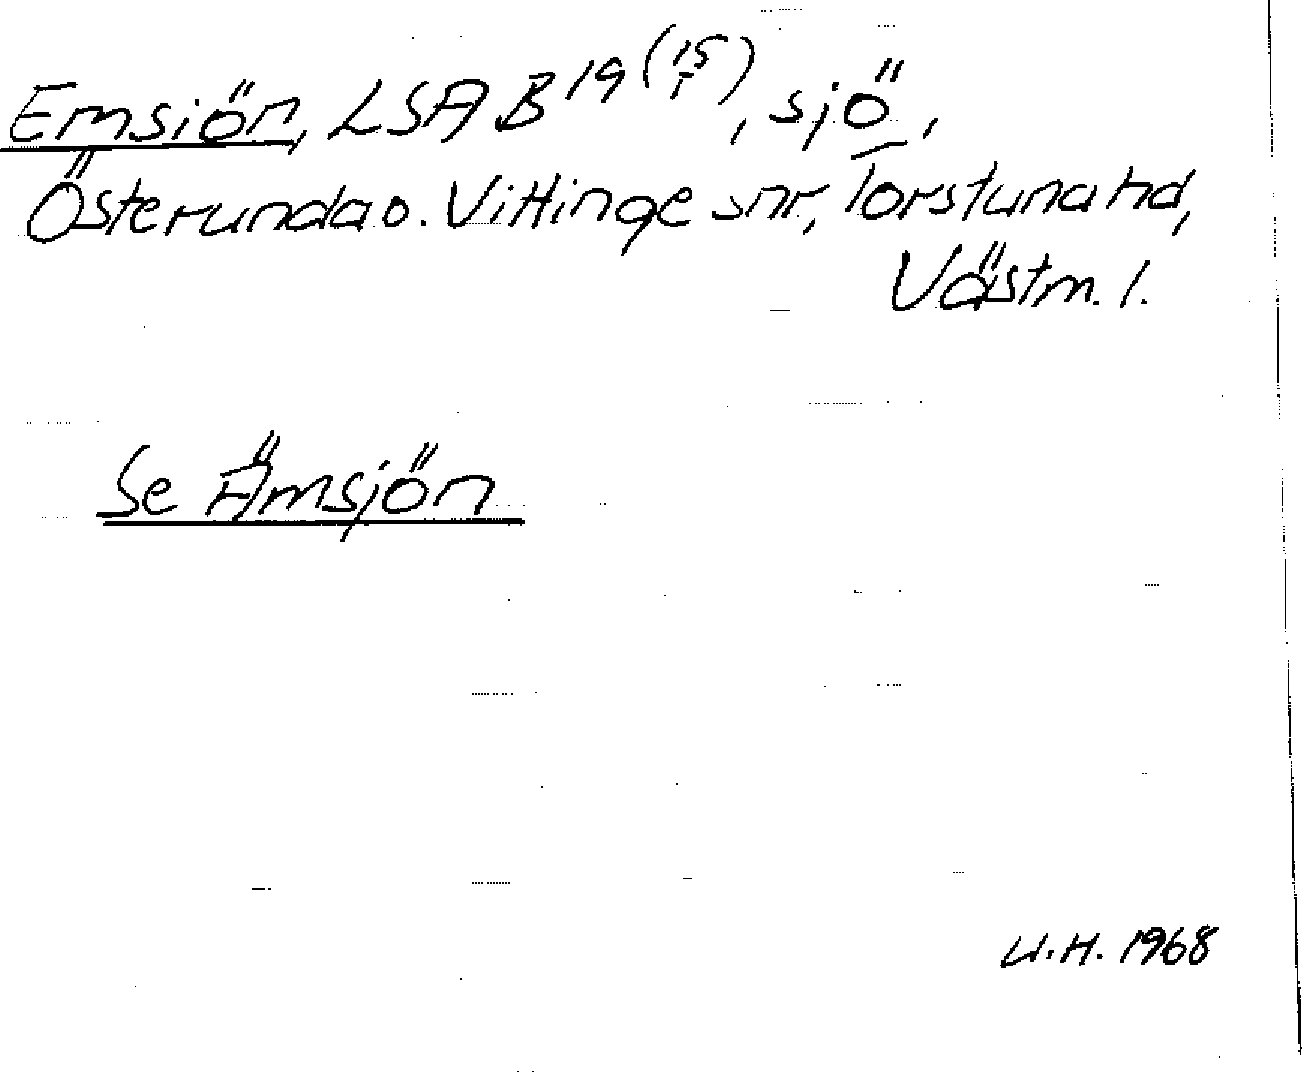 Emsiön, LSA B 19 (15/1), sjö,
Österunda o. Vittinge snr, Torstuna hd,
Västm. l.
Se Ämsjön
U.H. 1968